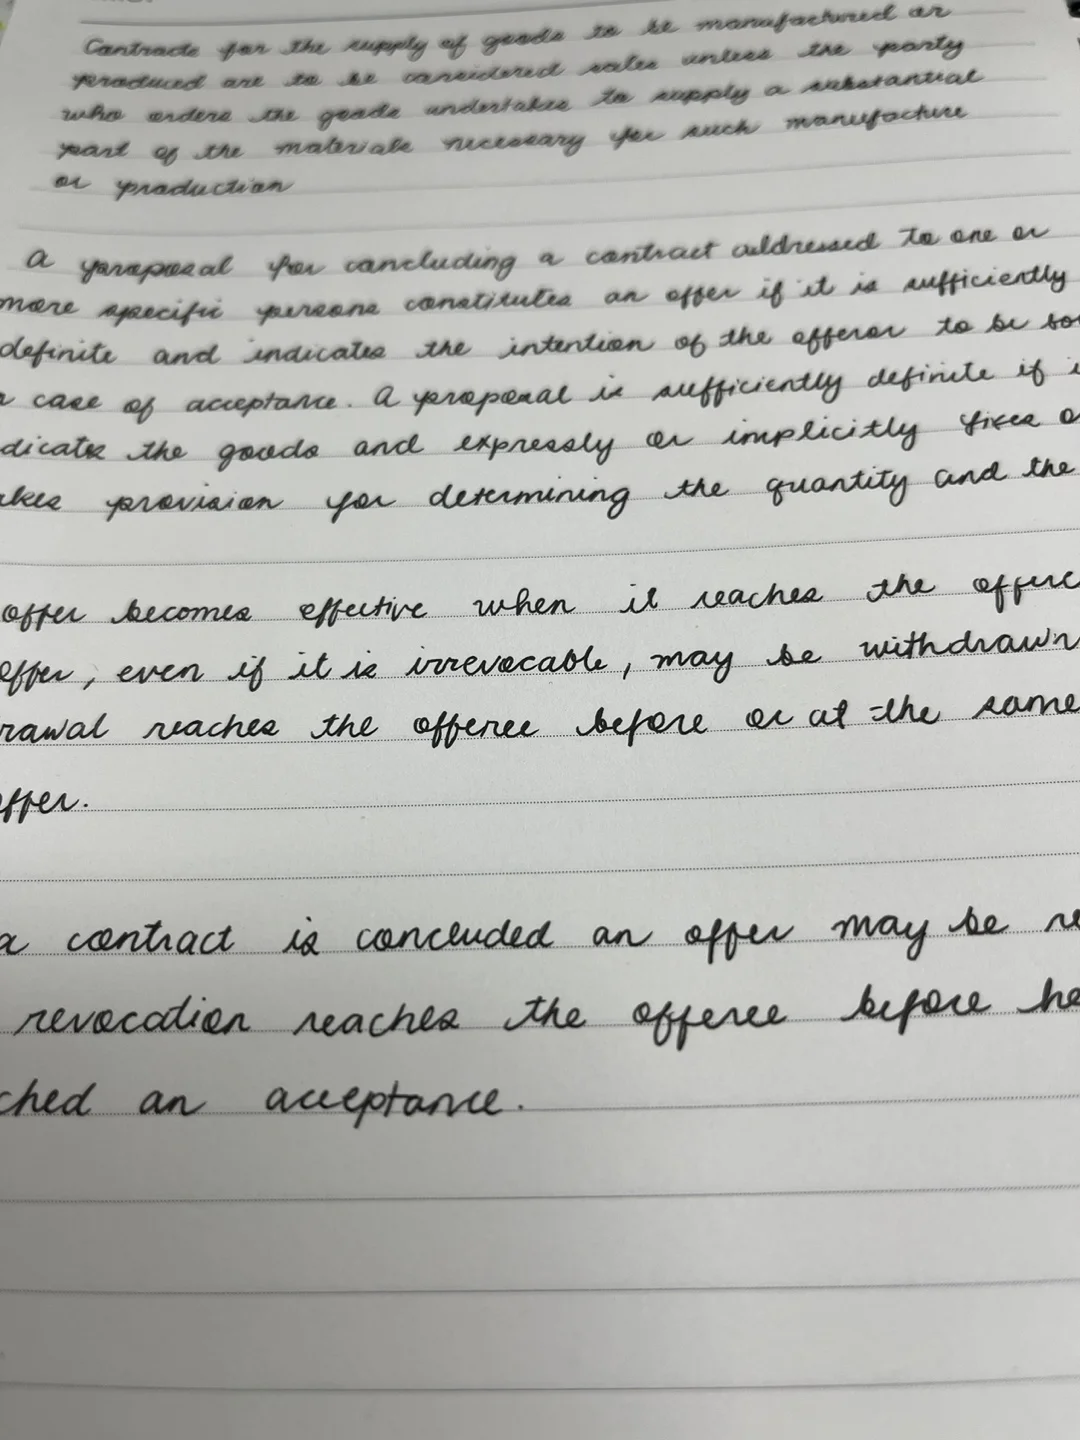 Contracts for the supply of goods to be manufactured or
produced are to be considered sales unless the party
who orders the goods undertakes to supply a substantial
part of the materials necessary for such manufacture
or production
A proposal for concluding a contract addressed to one or
more specific persons constitutes an offer if it is sufficiently
definite and indicates the intention of the offeror to be bou
case of acceptance. A proposal is sufficiently definite if i
dicates the goods and expressly or implicitly fixes o
akes provision for determining the quantity and the
offer becomes effective when it reaches the offere
offer, even if it is irrevocable, may be withdrawn
rawal reaches the offeree before or at the same
offer.
a contract is concluded an offer may be re
revocation reaches the offeree before he
ched an acceptance.